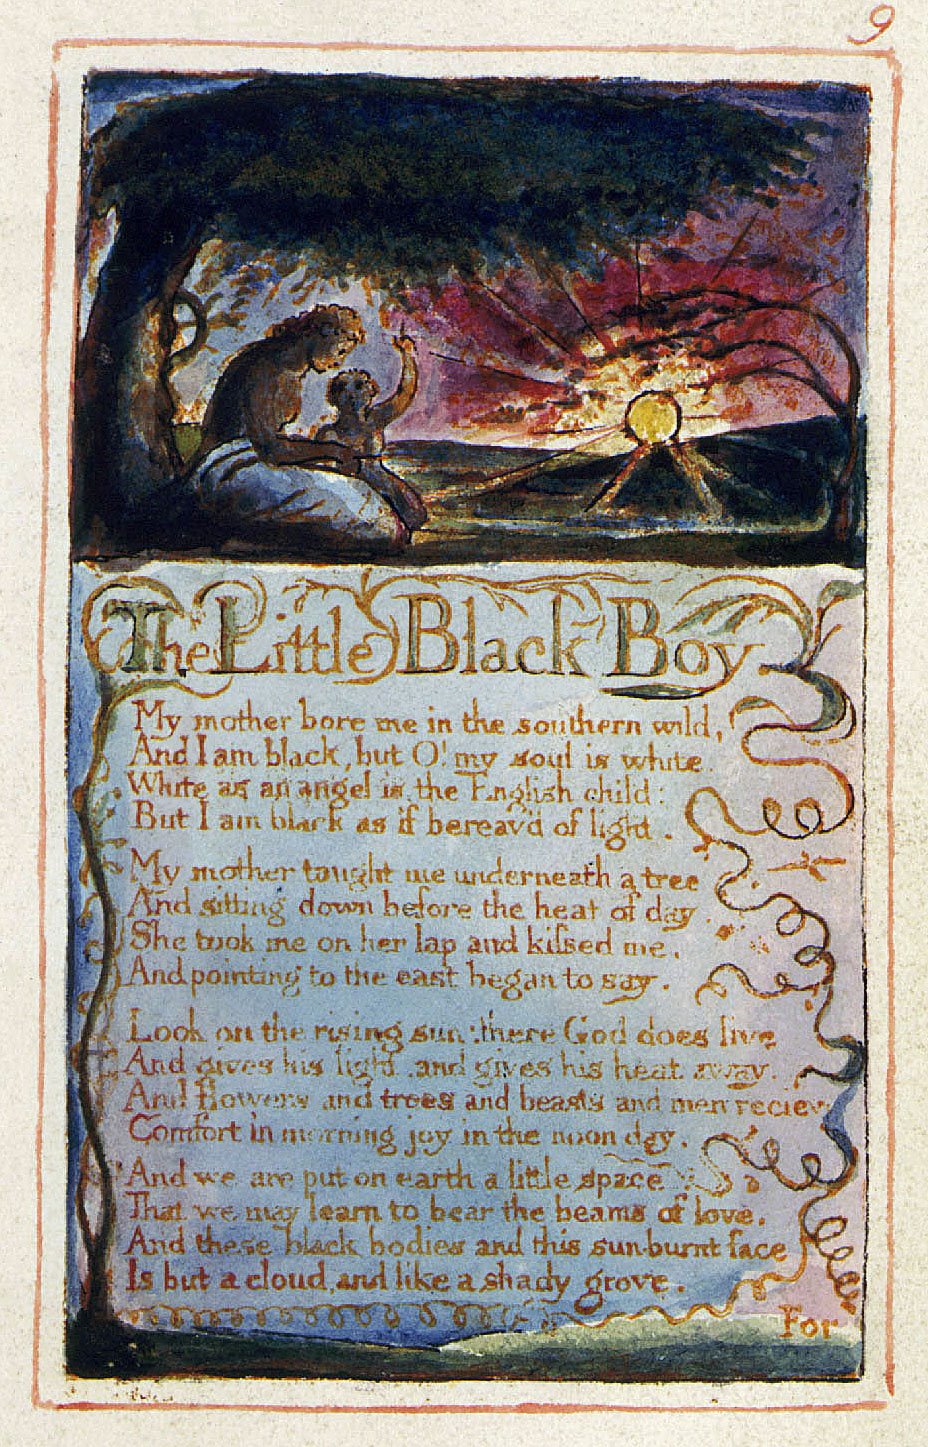 9
The Little Black Boy
My mother bore me in the southern wild,
And I am black, but O! my soul is white.
White as an angel is the English child:
But I am black as if bereav'd of light.
My mother taught me underneath a tree
And sitting down before the heat of day.
She took me on her lap and kifsed me,
And pointing to the east began to say.
Look on the rising sun: there God does live
And gives his light, and gives his heat away.
And flowers and trees and beasts and men recieve
Comfort in morning joy in the noon day.
And we are put on earth a little space
That we may learn to bear the beams of love.
And these black bodies and this sun-burnt face
Is but a cloud, and like a shady grove.
For